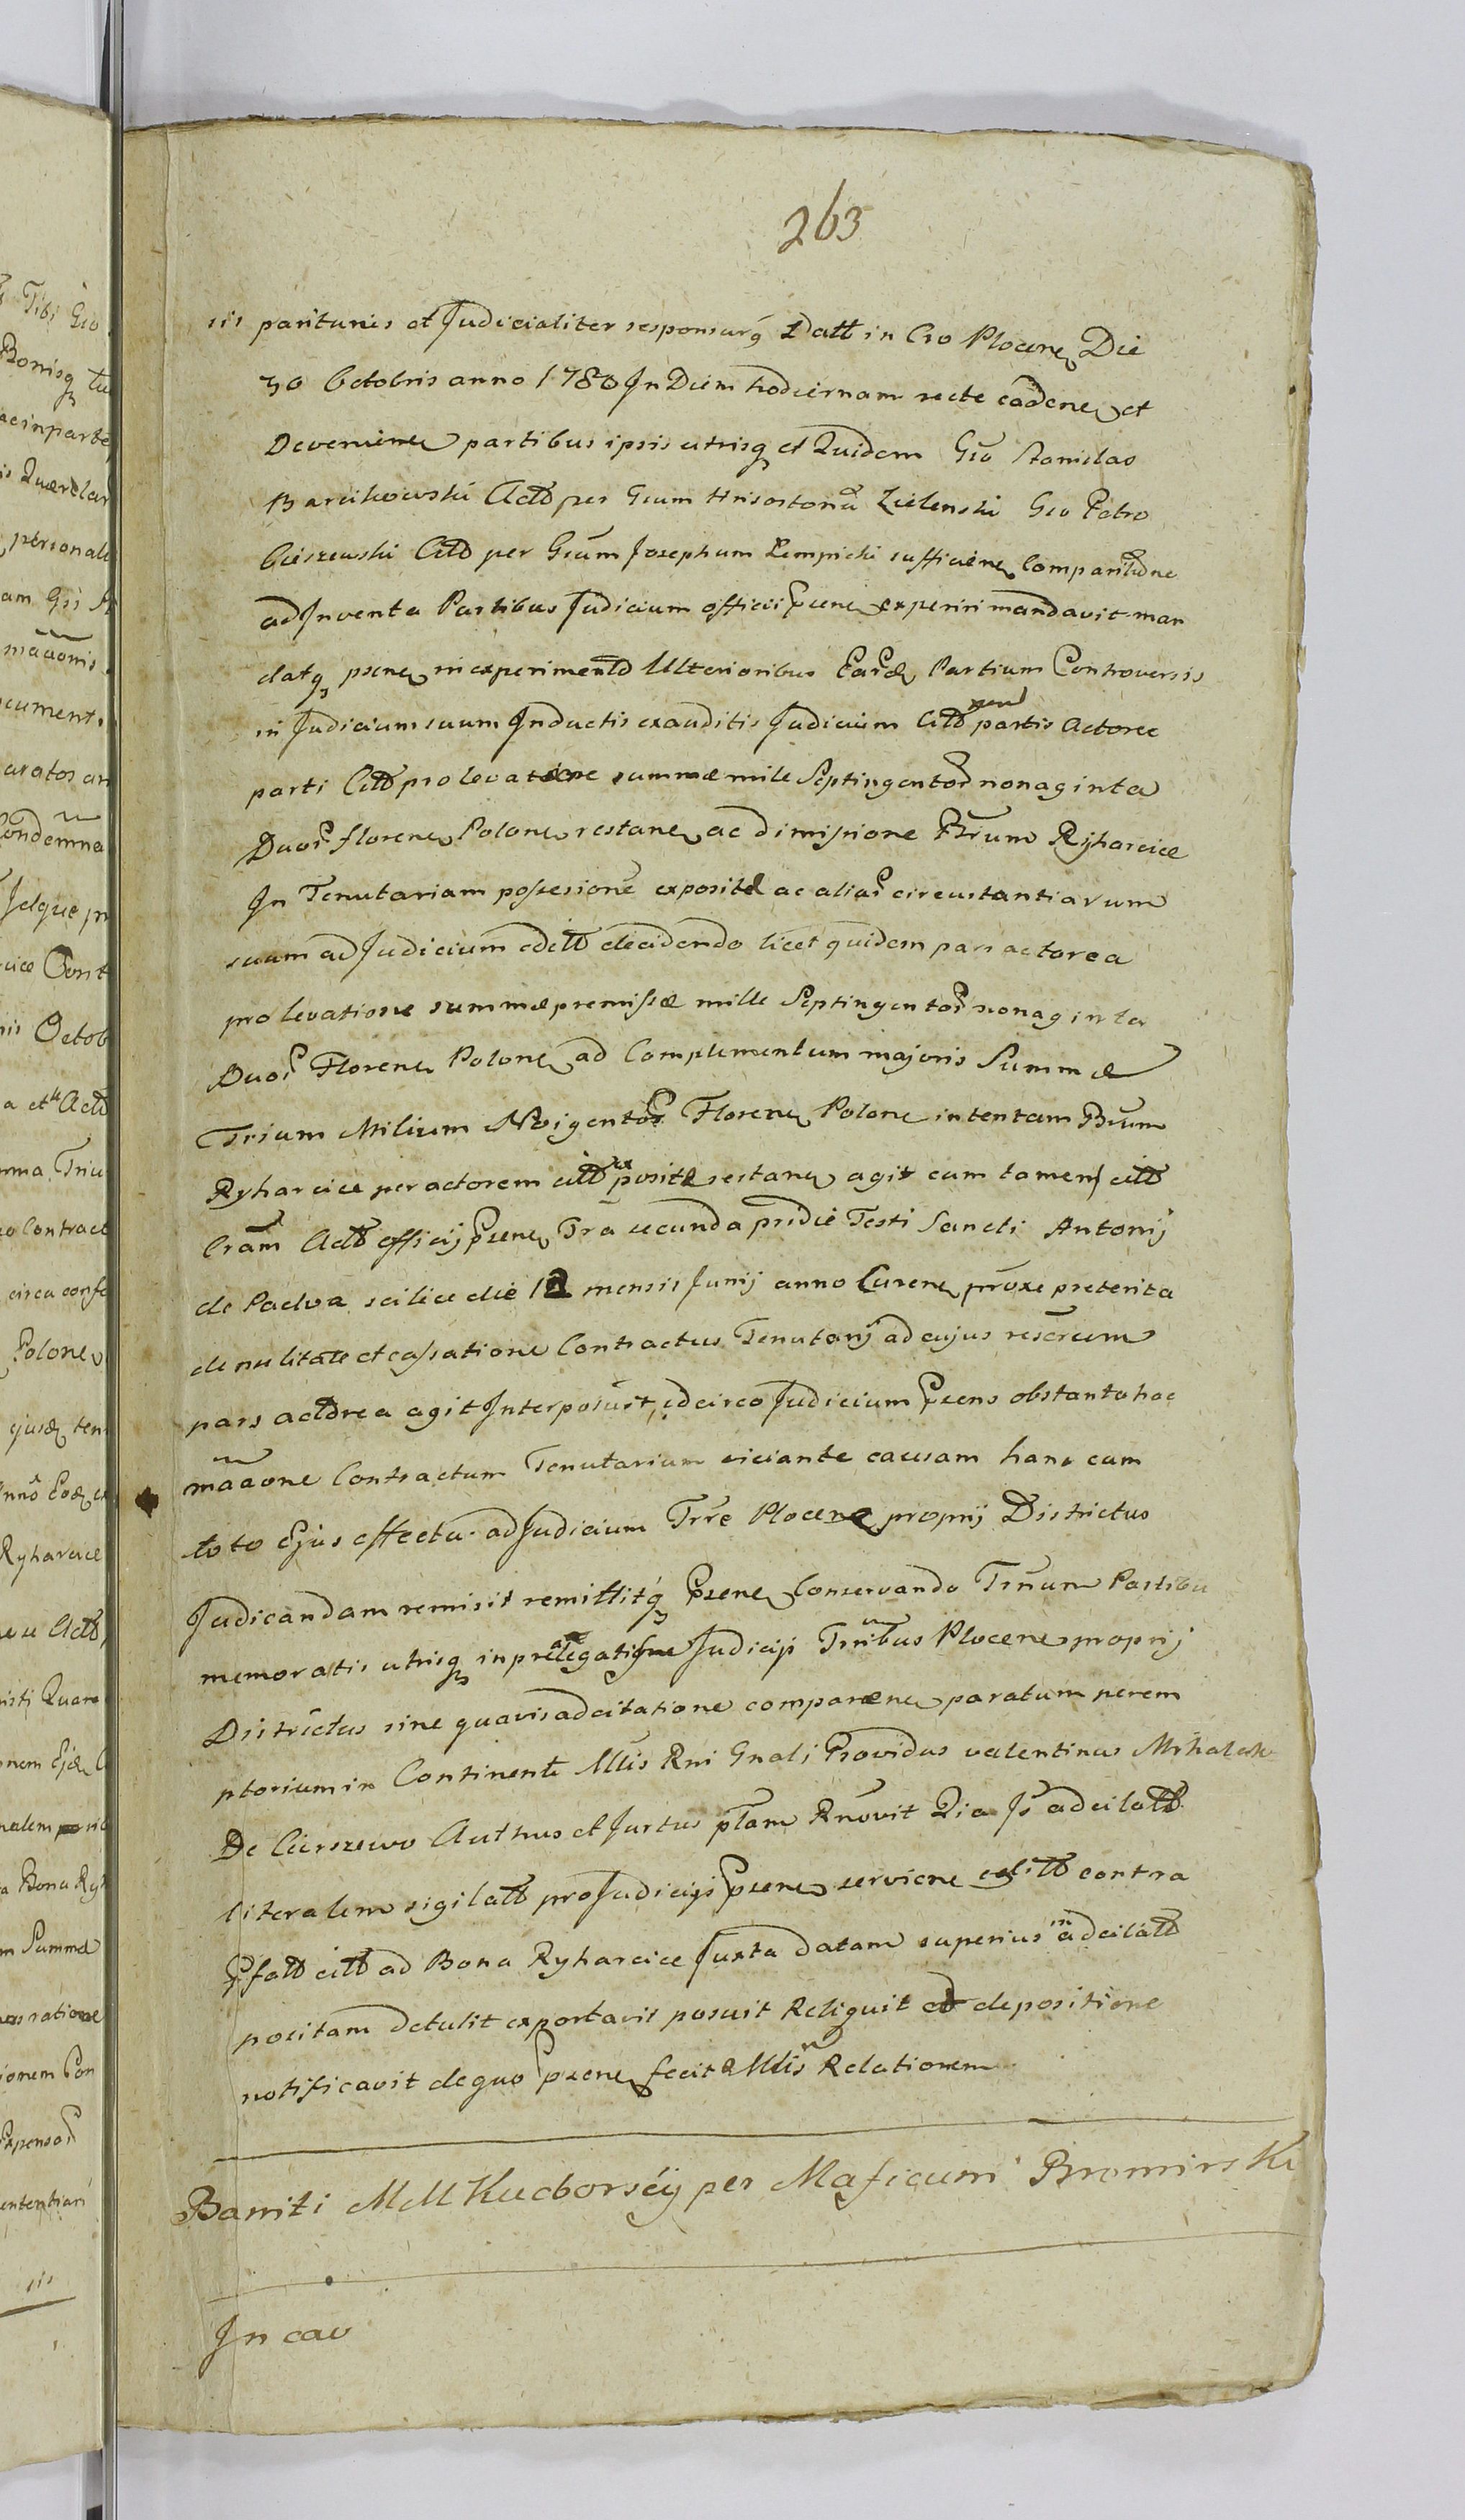 263
sis pariturus et Judicialiter responsurq Datt in Cro Plocen Die
30 Octobris anno 1780 In Diem hodiernam recte caden et
Devenien partibus ipsis utrisq et Quidem Gso Stanislao
Barcikowski Actō per Gsum Hrisostomū Zielenski Gso Petro
Cieszewski Citō per Gsum Josephum Lempicki sufficien Comparitione
ad Inventa Partibus Judicium officii Psens experiri mandavit man
datq psen in experimento Ulterioribus Earūd Partium Controversis
in Judicium suum Inductis exauditis Judicium Citō partis Actoree
parti Citō pro levatione summæ mile Septingentor nonaginta
Duor floren Polon restan ac dimissione Bonum Ryharcice
In Tenutariam possesionē exposite ac aliar circustantiarum
suum ad Judicium editō decidendo licet quidem pars actorea
pro levatione summæ premissæ mille Septingentor nonaginta
Duor Floren Polon ad Complementum majoris Summæ
Trium Milium Floren Polon in tentam Bnum
Ryharcice per actorem citō exposite restan agit cum tamen citō
Cram Actō officij Psen Tra secunda pridie Festi Sancti Antonij
de Padva scilice die 12 mensis Junij anno Curen proxe preterita
de nulitate et cassatione Contractus Tenutarij ad cujus
pars actorea agit Interposuit, idcirco Judicium Psens obstanta hac
māaone Contractum Tenutarium viciante causam hanc cum
toto Ejus effectu ad Judicium Trre Plocen proprij Districtus
Judicandam remisit remittitq Psen Conservando Trnum Partibus
memoratis utrisq in Judicij Trribus Plocen proprij
Districtus sine quavis adcitatione comparen paratum perem
ptorium in Continenti Mtis Rni Gnali Providus valentinus Mihalak
De Cierszewo Authus et Jurtus ptam Rnovit Qia Is adcitatō
literalem sigilatō pro Judicijs Psen servien editō contra
Psfatō citō ad Bona Ryharcice Juxta datam superius in adcitatō
positam detulit exportavit posuit Reliquit et depositione
notificavit de quo psen fecit Mtis Relationem
Baniti MM Kucborscij per Maficum Bromirski
In cau